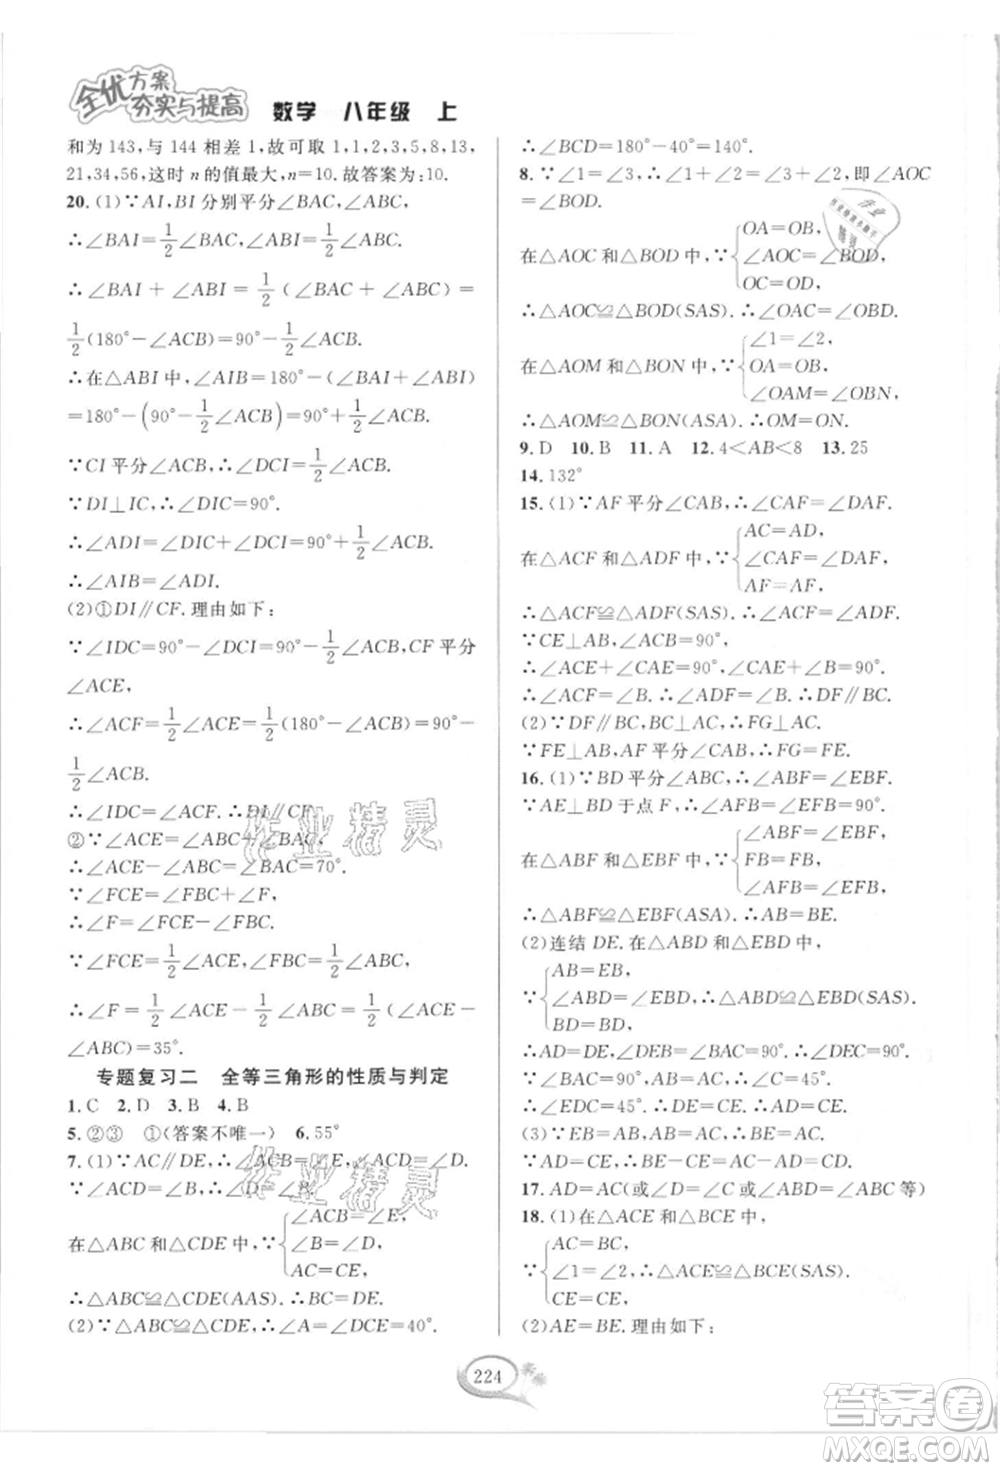 全优方案
夯实与提高 数学 八年级 上
和为 143,与 144 相差 1,故可取 1,1,2,3,5,8,13,
21,34,56,这时 n 的值最大,n=10. 故答案为:10.
20. (1)∵AI,BI 分别平分∠BAC,∠ABC,
∴∠BAI=1/2∠BAC,∠ABI=1/2∠ABC.
∴∠BAI+∠ABI=1/2(∠BAC+∠ABC)=
1/2(180°-∠ACB)=90°-1/2∠ACB.
∴在△ABI 中,∠AIB=180°-(∠BAI+∠ABI)
=180°-(90°-1/2∠ACB)=90°+1/2∠ACB.
∵CI 平分∠ACB,∴∠DCI=1/2∠ACB.
∵DI⊥IC,∴∠DIC=90°.
∴∠ADI=∠DIC+∠DCI=90°+1/2∠ACB.
∴∠AIB=∠ADI.
(2)①DI∥CF. 理由如下:
∵∠IDC=90°-∠DCI=90°-1/2∠ACB,CF 平分
∠ACE,
∴∠ACF=1/2∠ACE=1/2(180°-∠ACB)=90°-
1/2∠ACB.
∴∠IDC=∠ACF. ∴DI∥CF.
②∵∠ACE=∠ABC+∠BAC,
∴∠ACE-∠ABC=∠BAC=70°.
∵∠FCE=∠FBC+∠F,
∴∠F=∠FCE-∠FBC.
∵∠FCE=1/2∠ACE,∠FBC=1/2∠ABC,
∴∠F=1/2∠ACE-1/2∠ABC=1/2(∠ACE-
∠ABC)=35°.
专题复习二 全等三角形的性质与判定
1. C 2. D 3. B 4. B
5. ②③ ①(答案不唯一) 6. 55°
7. (1)∵AC∥DE,∴∠ACB=∠E,∠ACD=∠D.
∵∠ACD=∠B,∴∠D=∠B.
在△ABC 和△CDE 中,∵{∠ACB=∠E,
∠B=∠D,
AC=CE,
∴△ABC≌△CDE(AAS). ∴BC=DE.
(2)∵△ABC≌△CDE,∴∠A=∠DCE=40°.
∴∠BCD=180°-40°=140°.
8. ∵∠1=∠2,∴∠1+∠2=∠3+∠2,即∠AOC
=∠BOD.
在△AOC 和△BOD 中,∵{OA=OB,
∠AOC=∠BOD,
OC=OD,
∴△AOC≌△BOD(SAS). ∴∠OAC=∠OBD.
在△AOM 和△BON 中,∵{∠1=∠2,
OA=OB,
∠OAM=∠OBN,
∴△AOM≌△BON(ASA). ∴OM=ON.
9. D 10. B 11. A 12. 4<AB<8 13. 25
14. 132°
15. (1)∵AF 平分∠CAB,∴∠CAF=∠DAF.
在△ACF 和△ADF 中,∵{AC=AD,
∠CAF=∠DAF,
AF=AF,
∴△ACF≌△ADF(SAS). ∴∠ACF=∠ADF.
∵CE⊥AB,∠CAB=90°,
∴∠ACE+∠CAE=90°,∠CAE+∠B=90°.
∴∠ACF=∠B. ∴∠ADF=∠B. ∴DF∥BC.
(2)∵DF∥BC,BC⊥AC,∴FG⊥AC.
∵FE⊥AB,AF 平分∠CAB,∴FG=FE.
16. (1)∵BD 平分∠ABC,∴∠ABF=∠EBF.
∵AE⊥BD 于点 F,∴∠AFB=∠EFB=90°.
在△ABF 和△EBF 中,∵{∠ABF=∠EBF,
FB=FB,
∠AFB=∠EFB,
∴△ABF≌△EBF(ASA). ∴AB=BE.
(2)连结 DE. 在△ABD 和△EBD 中,
∵{AB=EB,
∠ABD=∠EBD,∴△ABD≌△EBD(SAS).
BD=BD,
∴AD=DE,∠BED=∠BAC=90°. ∴∠DEC=90°.
∵AD=CE,∴DE=CE. ∴∠EDC=∠ECD.
∴∠ECD=45°. ∴∠ABC=45°.
(3)∵∠BEC=∠ABC,∴BC=CE.
∵AD=CE,∴AD=BC.
17. AD=AC(或∠D=∠C或∠ABD=∠ABC等)
18. (1)在△ACE 和△BCE 中,
∵{AC=BC,
∠1=∠2,∴△ACE≌△BCE(SAS).
CE=CE,
(2)AE=BE. 理由如下:
224
作业精灵
作业精灵
答案圈
MXQE.COM